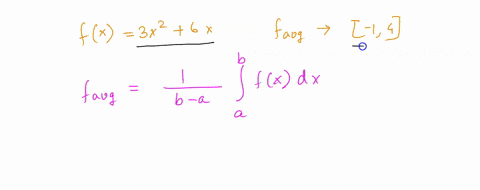 f(x) = 3x² + 6x f_avg → [-1, 4]
f_avg = 1/(b-a) ∫_a^b f(x) dx